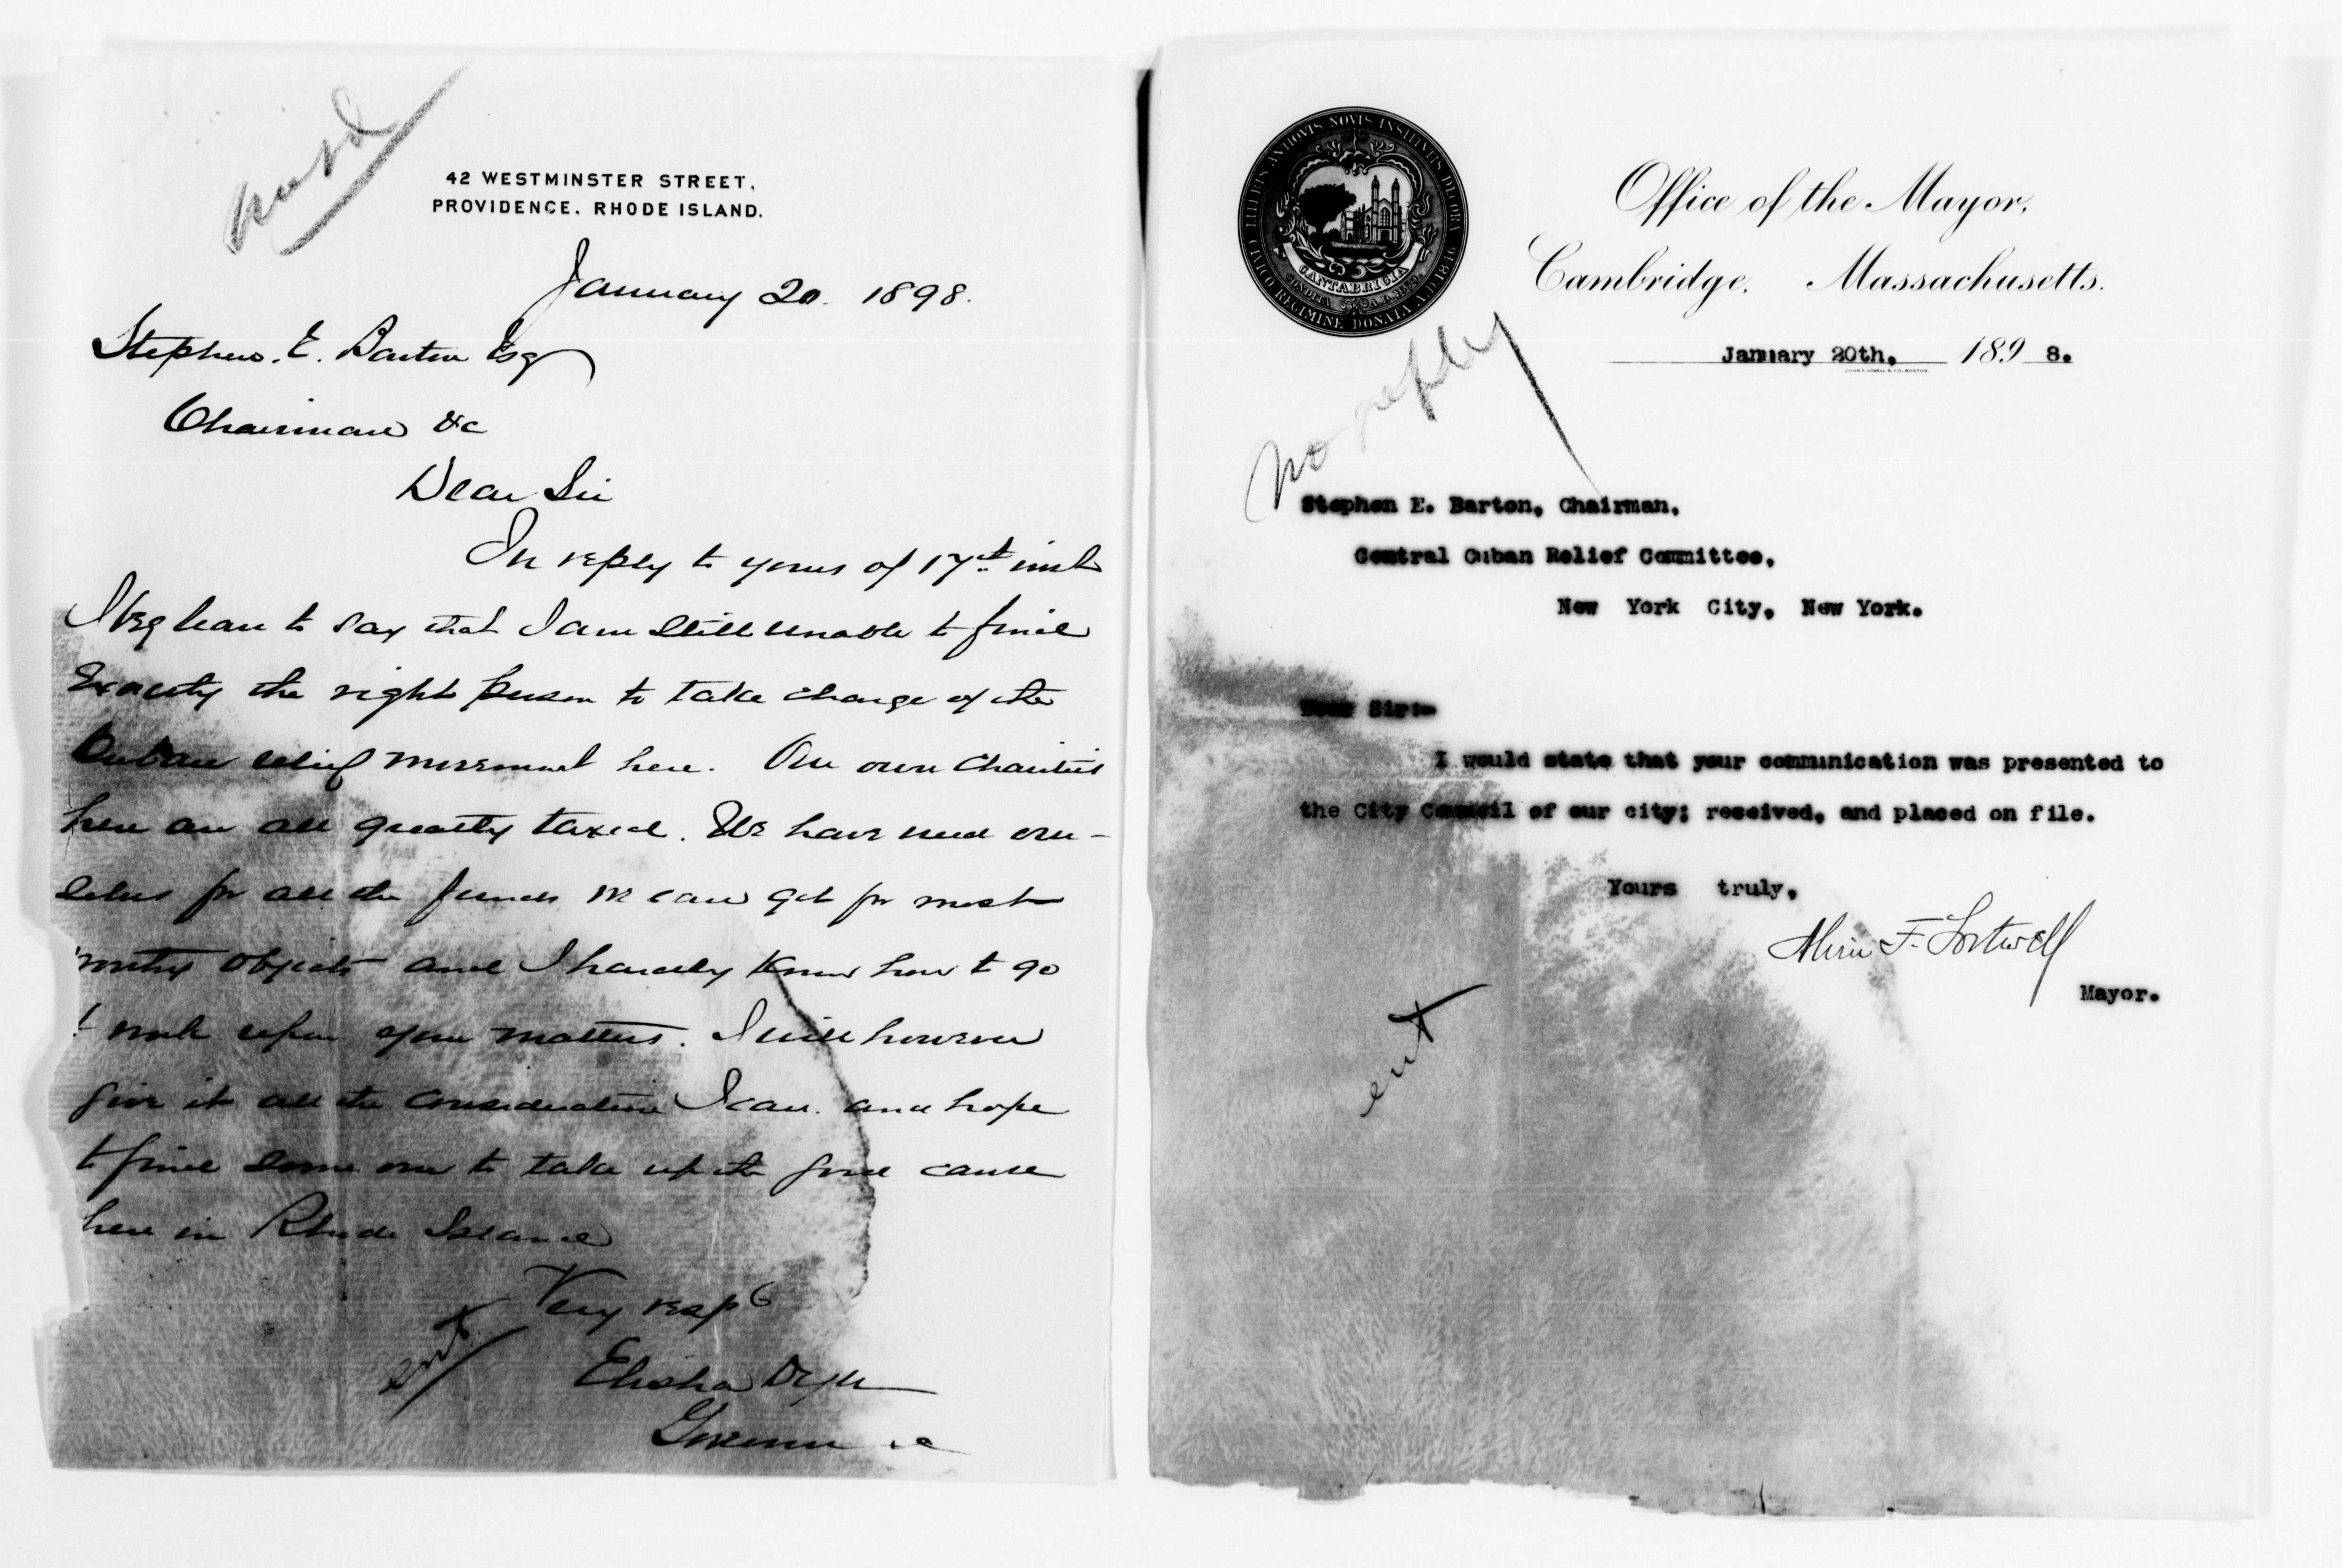 42 WESTMINSTER STREET.
PROVIDENCE. RHODE ISLAND.
January 20. 1898.
Stephen. E. Barton Esq
Chairman &c
Dear Sir
In reply to yours of 17th inst
I beg leave to say that I am still unable to find
Exactly the right person to take charge of the
Cuban relief movement here. Our own charities
here are all greatly taxed. We have need our-
selves for all the funds we can get for most
worthy objects and I hardly know how to go
to work upon your matters. I will however
give it all the consideration I can. and hope
to find some one to take up the good cause
here in Rhode Island
Very resp
Elisha Dyer
Governor &c
ent
Office of the Mayor,
Cambridge, Massachusetts.
January 20th, 1898.
JOHN A. LOWELL & CO. BOSTON.
LITERIS ANTIQVIS NOVIS INSTITVTIS DECORA
CIVICO REGIMINE DONATA A.D. 1846
CANTABRIGIA
CONDITA A.D. 1630
no reply
Stephen E. Barton, Chairman.
Central Cuban Relief Committee,
New York City, New York.
Dear Sir:-
I would state that your communication was presented to
the City Council of our city; received, and placed on file.
Yours truly,
Alvin F. Sortwell
Mayor.
ent